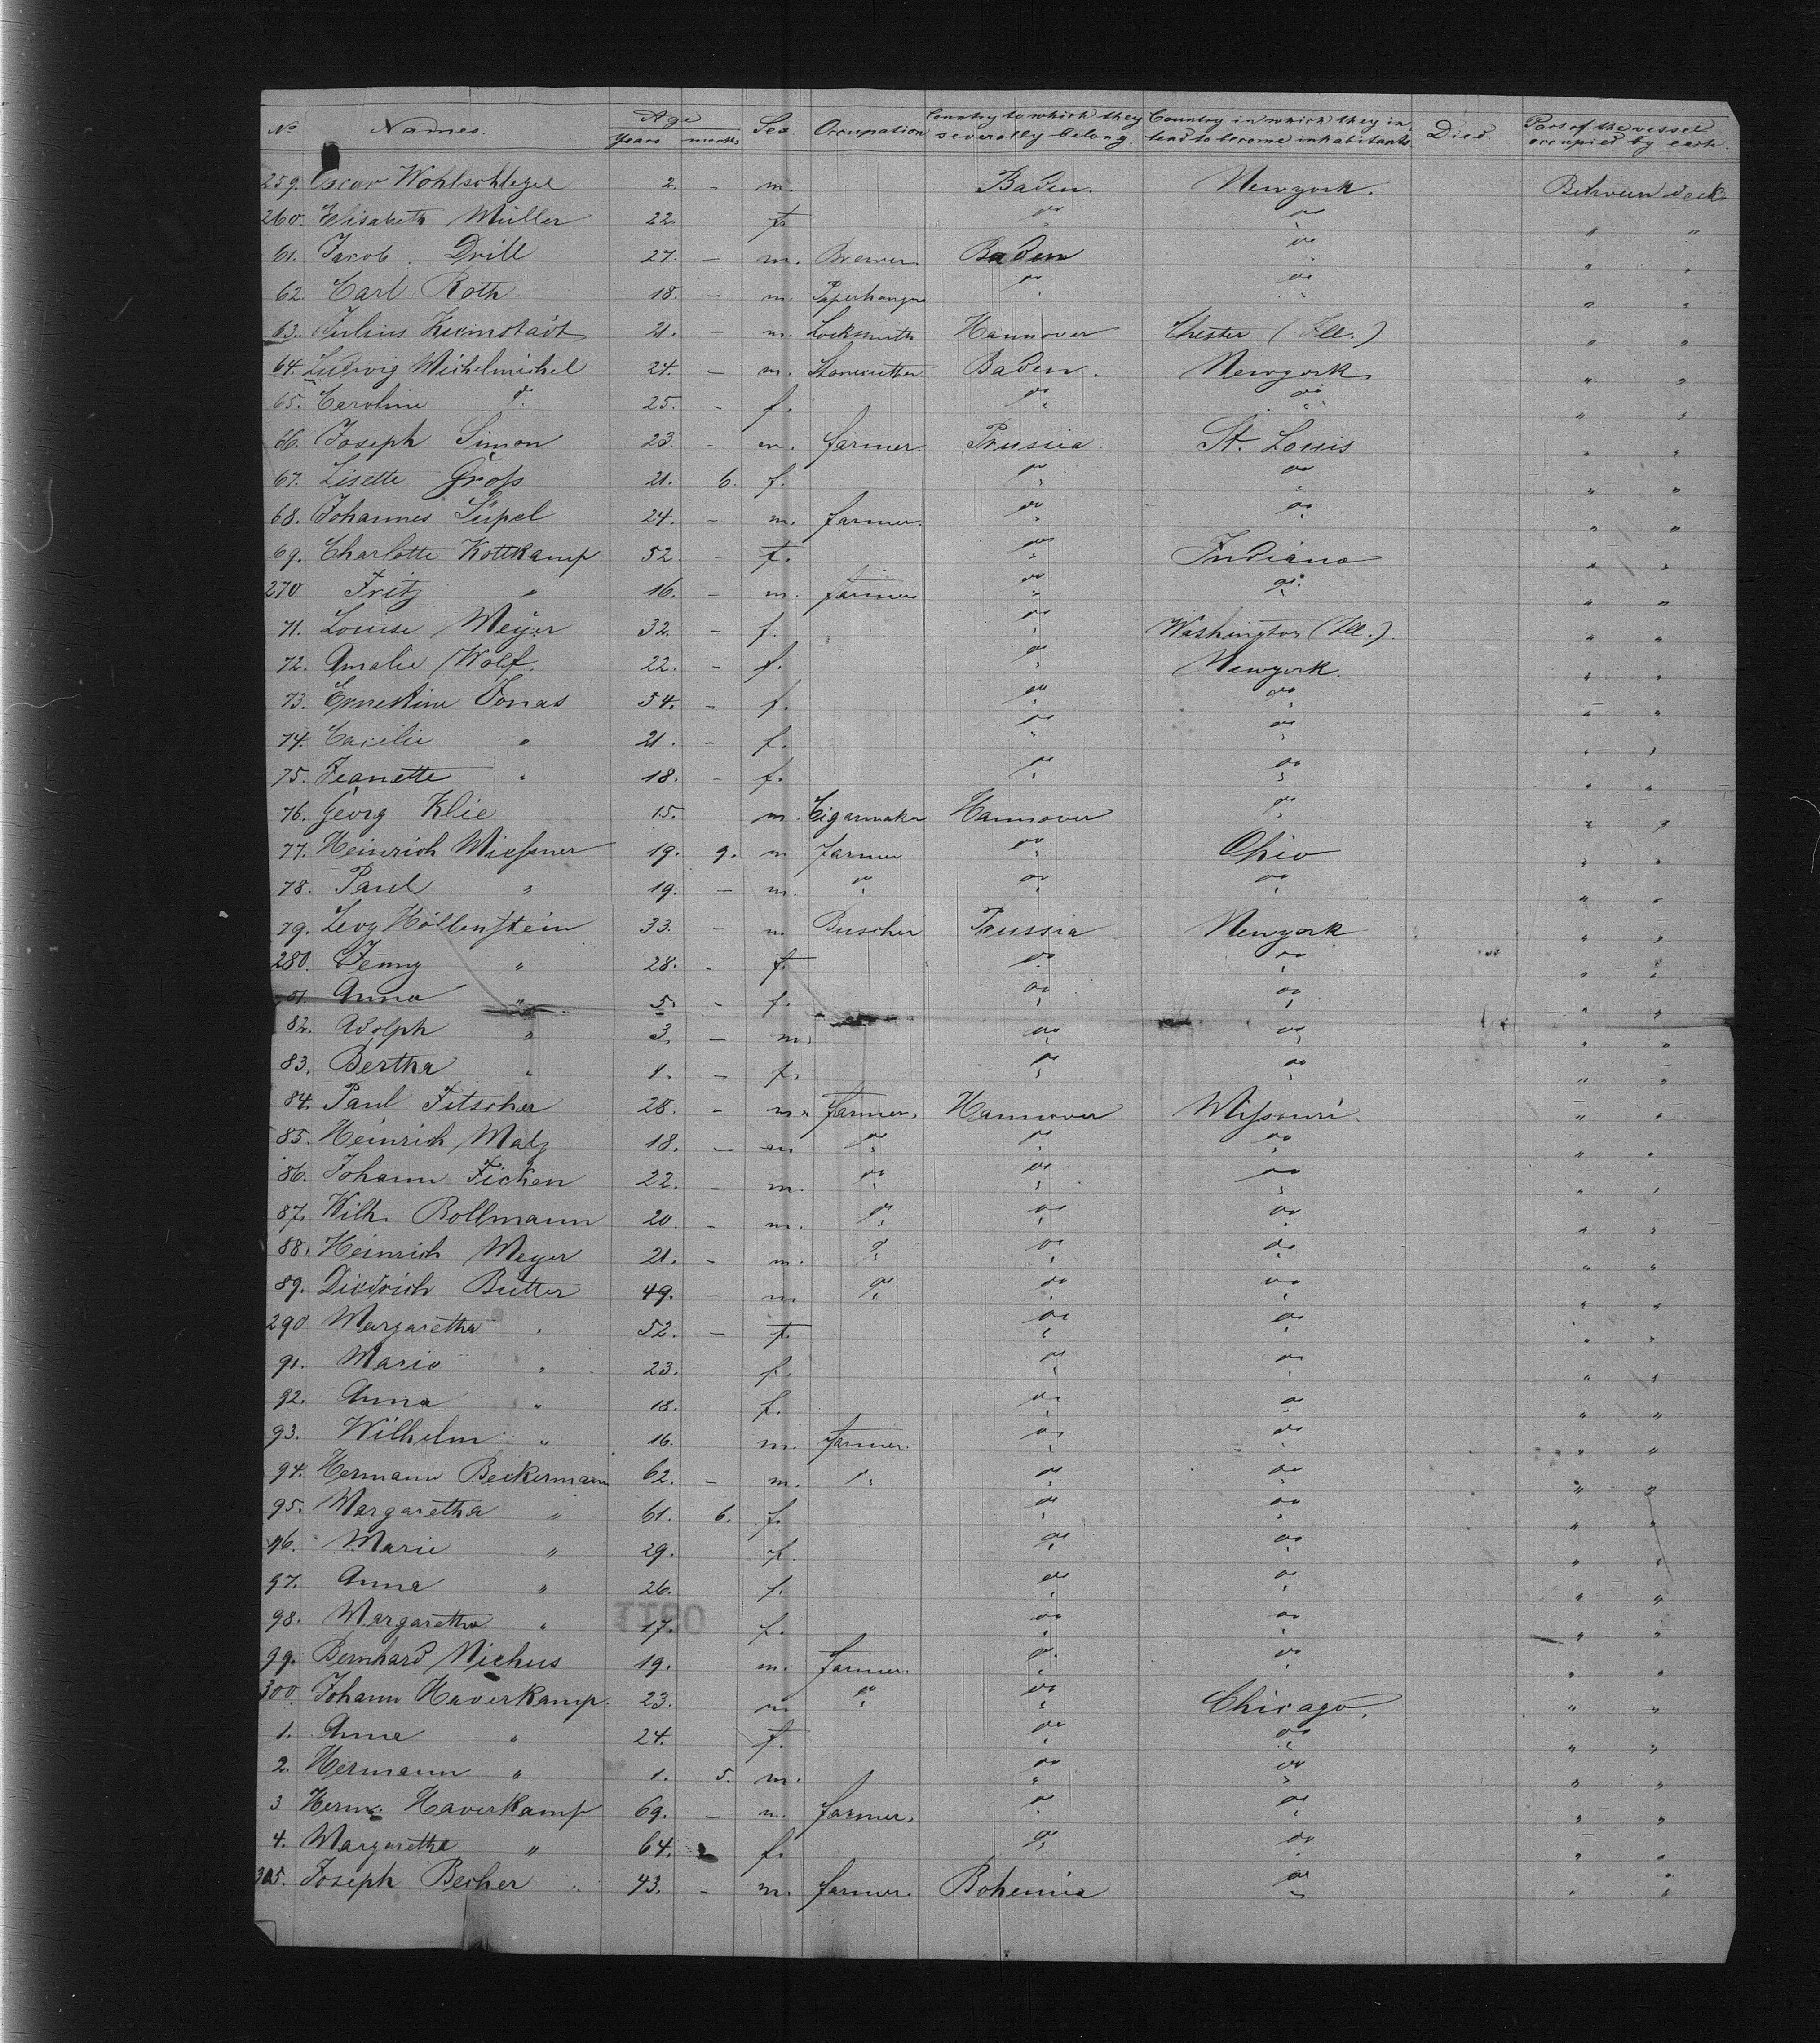 No Names. Age Years months Sex Occupation Country to which they severally belong. Country in which they intend to become inhabitants. Died. Part of the vessel occupied by each.
259. Oscar Wohlschlegel 2. - m. Baden. Newyork. Between deck
260. Elisabeth Müller 22. f. do do " "
61. Jacob Drill 27. - m. Brewer Baden do " "
62. Carl Roth 18. - m. Paperhanger do do " "
63. Julius 21. - m. Locksmith Hannover Chester (Ill.) " "
64. Ludwig Michelmichel 24. - m. Stonecutter Baden. Newyork " "
65. Caroline d. 25. - f. do do " "
66. Joseph Simon 23. - m. farmer. Prussia. St. Louis " "
67. Lisette Groß 21. 6. f. do do " "
68. Johannes Süpel 24. - m. farmer. do do " "
69. Charlotte Kottkamp 52. - f. do Indiana " "
270 Fritz " 16. - m. farmer do do " "
71. Louise Meyer 32. - f. do Washington (Ill.). " "
72. Amalie Wolf. 22. - f. do Newyork. " "
73. Ernestine Jonas 54. - f. do do " "
74. Cacilie " 21. - f. do do " "
75. Jeanette " 18. - f. do do " "
76. Georg Klie 15. m. Cigarmaker Hannover do " "
77. Heinrich Wießner 19. 9. m farmer do Ohio " "
78. Paul " 19. - m. do do do " "
79. Levy Höllenstein 33. - m. Buscher Prussia Newyork " "
280. Jenny " 28. - f. do do " "
81. Anna " 5. - f. do do " "
82. Adolph " 3. - m. do do " "
83. Bertha " 1. - f. do do " "
84. Paul Fitscher 28. - m. farmer. Hannover Mißouri. " "
85. Heinrich Malz 18. - m do do do " "
86. Johann Ficken 22. - m. do do do " "
87. Wilh. Bollmann 20. - m. do do do " "
88. Heinrich Meyer 21. - m. do do do " "
89. Diedrich Butter 49. - m. do do do " "
290 Margaretha " 52. - f. do do " "
91. Marie " 23. f. do do " "
92. Anna " 18. f. do do " "
93. Wilhelm " 16. m. farmer. do do " "
94. Hermann Beckermann 62. - m. do do do " "
95. Margaretha " 61. 6. f. do do " "
96. Marie " 29. f. do do " "
97. Anna " 26. f. do do " "
98. Margaretha " 17. f. do do " "
99. Bernhard Niehus 19. m. farmer. do do " "
300. Johann Haverkamp. 23. m. do do Chicago. " "
1. Anna " 24. f. do do " "
2. Hermann " 1. 5. m. do do " "
3 Herm. Haverkamp 69. - m. farmer. do do " "
4. Margaretha " 64. f. do do " "
305. Joseph Becher 43. - m. farmer. Bohemia do " "